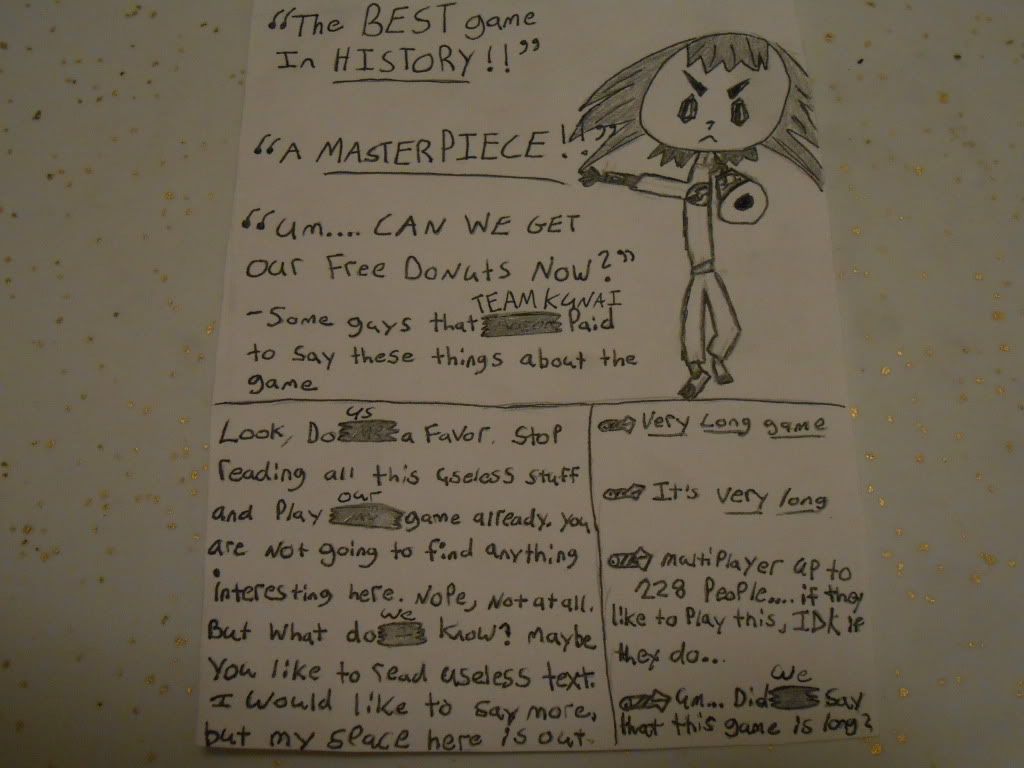 “The BEST game
In HISTORY!!”
“A MASTERPIECE!!”
“um.... CAN WE GET
our Free Donuts Now?”
TEAM KUNAI
-Some guys that Paid
to say these things about the
game
us
Look, Do a Favor. Stop
reading all this useless stuff
our
and Play game already. you
are Not going to find anything
interesting here. Nope, Not at all.
we
But what do know? maybe
you like to read useless text.
I would like to say more,
but my space here is out.
Very Long game
It's very long
multiplayer up to
228 People.... if they
like to Play this, IDK if
they do...
we
um... Did Say
that this game is long?